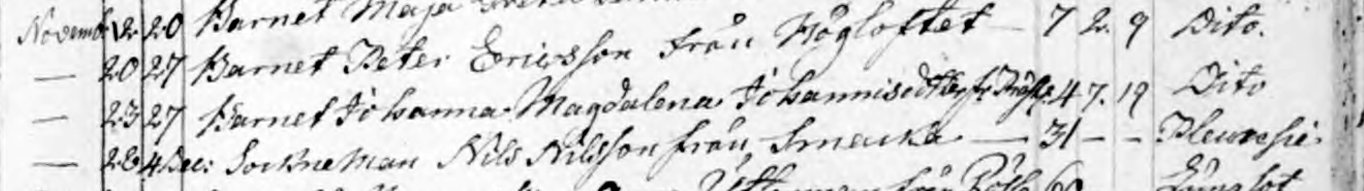 Novemb 12 20 Barnet Maja
— 20 27 Barnet Peter Ericsson från Högloftet — 7 2. 9 Dito.
— 23 27 Barnet Johanna Magdalena Johannisdotter fr 4 7. 19 Dito
— 28 4 Dec: Sockneman Nils Nilsson från — 31 — — Pleuresie.
från 60 Lungsot